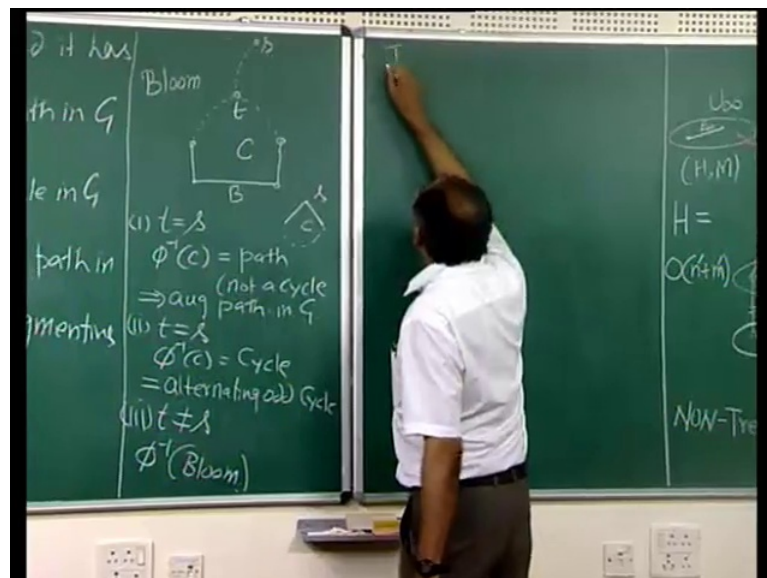 it has
th in G
le in G
path in
gmenting
Bloom
s
t
C
B
s
C
(i) t = s
ϕ⁻¹(C) = path
(not a cycle
⇒ aug path in G
(ii) t = s
ϕ⁻¹(C) = Cycle
= alternating odd Cycle
(iii) t ≠ s
ϕ⁻¹(Bloom)
T
(H, M)
H =
O(n'+m')
NON-Tre